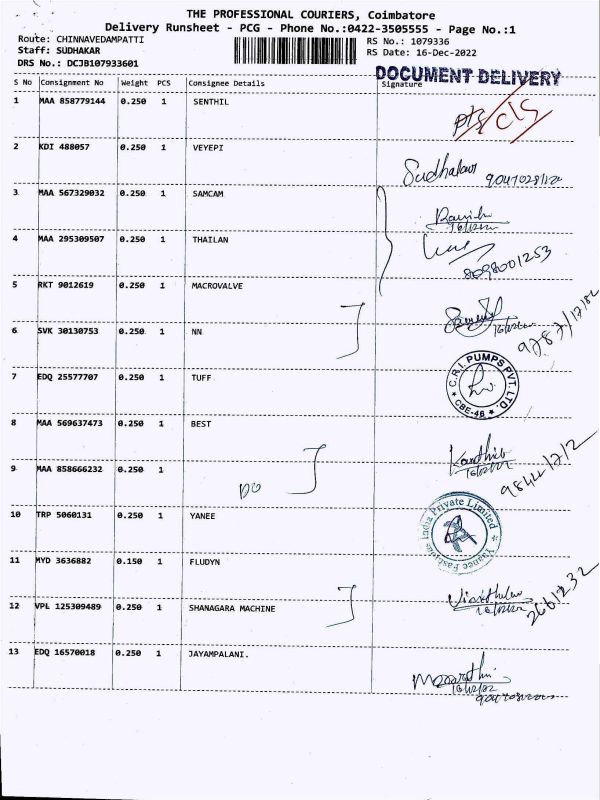 THE PROFESSIONAL COURIERS, Coimbatore
Delivery Runsheet - PCG - Phone No.:0422-3505555 - Page No.:1
Route: CHINNAVEDAMPATTI RS No.: 1079336
Staff: SUDHAKAR RS Date: 16-Dec-2022
DRS No.: DCJB107933601
DOCUMENT DELIVERY
S No Consignment No Weight PCS Consignee Details Signature
1 MAA 858779144 0.250 1 SENTHIL
2 KDI 488057 0.250 1 VEYEPI
Sudhakar
3 MAA 567329032 0.250 1 SAMCAM
16/12/22
4 MAA 295309507 0.250 1 THAILAN
8098001253
5 RKT 9012619 0.250 1 MACROVALVE
16/12/22
6 SVK 30130753 0.250 1 NN
7 EDQ 25577707 0.250 1 TUFF
C.R.I. PUMPS PVT. LTD.
CBE-49
8 MAA 569637473 0.250 1 BEST
Karthik
16/12/22
9 MAA 858666232 0.250 1
DO
10 TRP 5060131 0.250 1 YANEE
India Private Limited
11 MYD 3636882 0.150 1 FLUDYN
16/12/22
12 VPL 125309489 0.250 1 SHANAGARA MACHINE
13 EDQ 16570018 0.250 1 JAYAMPALANI.